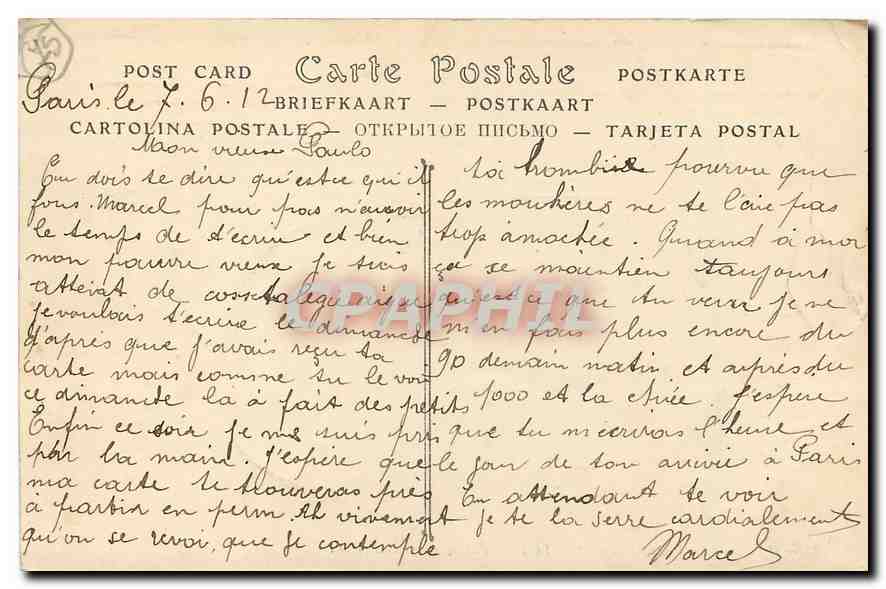 45
POST CARD Carte Postale POSTKARTE
Paris le 7.6.12
BRIEFKAART — POSTKAART
CARTOLINA POSTALE — ОТКРЫТОЕ ПИСЬМО — TARJETA POSTAL
Mon vieux Paulo
Tu dois te dire qu'estce qu'il
fous Marcel pour pas n'avoir
le temps de t'écrire et bien
mon pauvre vieux je suis
atteint de cosstalegie aigue
je voulais t'écrire le dimanche
d'après que j'avais reçu ta
carte mais comme tu le voi
ce dimanche la à fait des petits
Enfin ce soir je me suis pris
par la main. J'espère que
ma carte te trouveras près
à partir en perm. Ah vivement
qu'on se revoi, que je contemple
ta trombine pourvu que
les moukères ne te l'aie pas
trop amochée. Quand à moi
ça se maintien toujours
qu'est ce que tu veux je ne
m'en fais plus encore du
90 demain matin et après du
1000 et la civée. J'espère
que tu m'écriras l'heure et
le jour de ton arrivée à Paris
En attendant te voir
je te la serre cordialement
Marcel
CPAPHIL